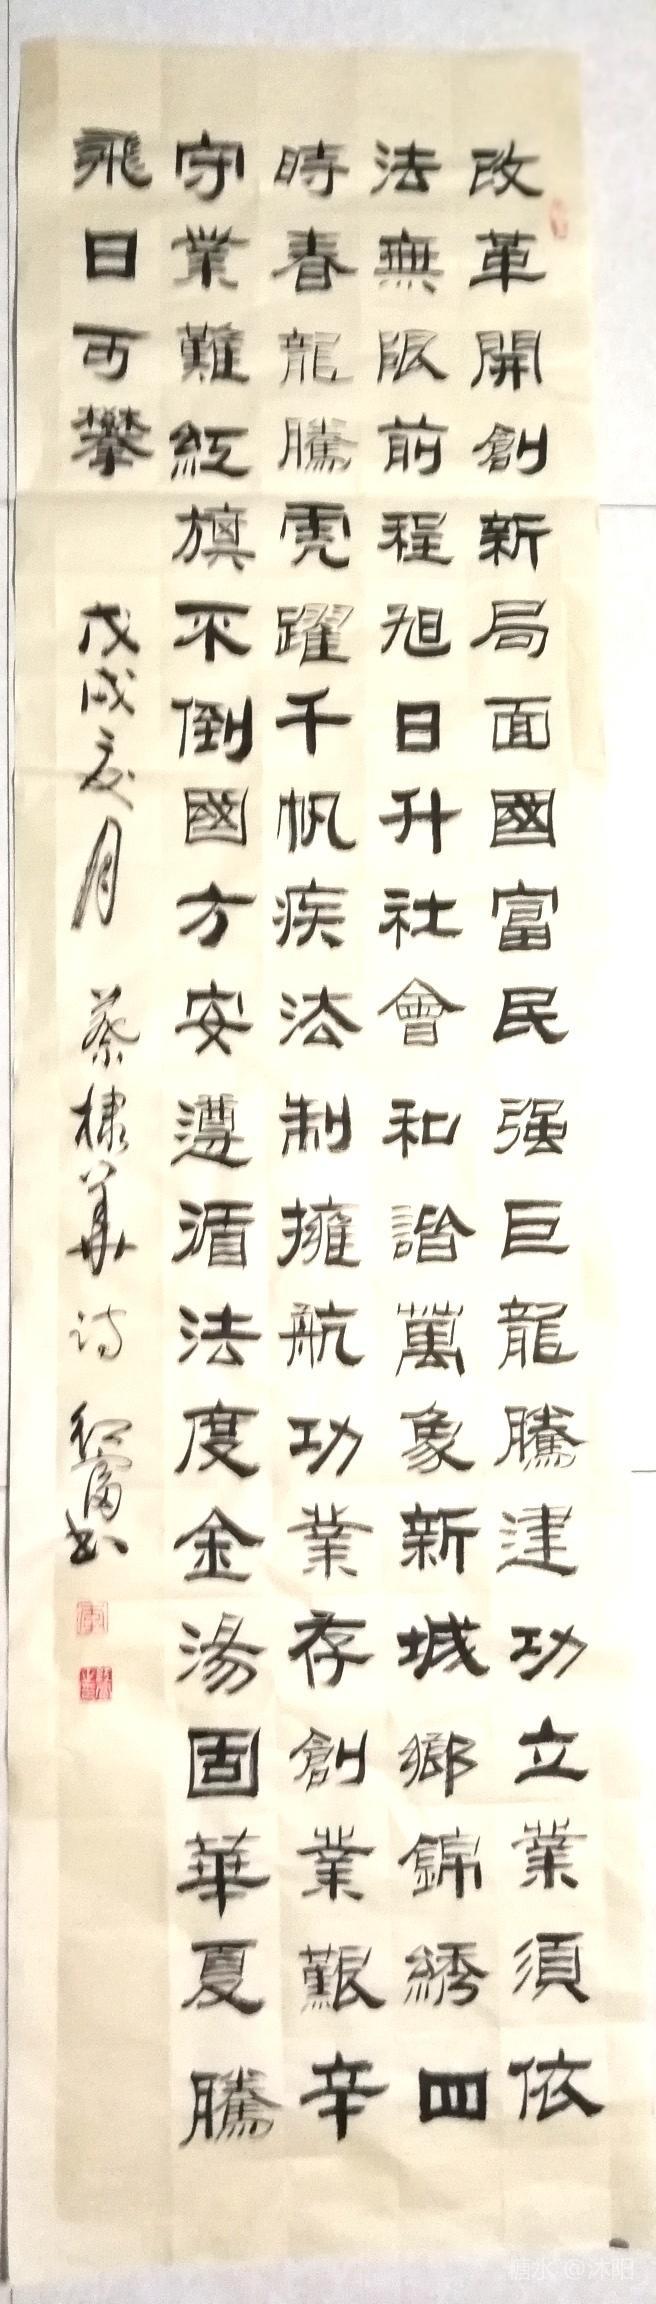 改革開創新局面國富民强巨龍騰建功立業須依
法無限前程旭日升社會和諧萬象新城鄉錦綉四
時春龍騰虎躍千帆疾法制擁航功業存創業艱辛
守業難紅旗不倒國方安遵循法度金湯固華夏騰
飛日可攀
戊戌夏月 蔡棣華诗 紅富书
糖水 @沐阳